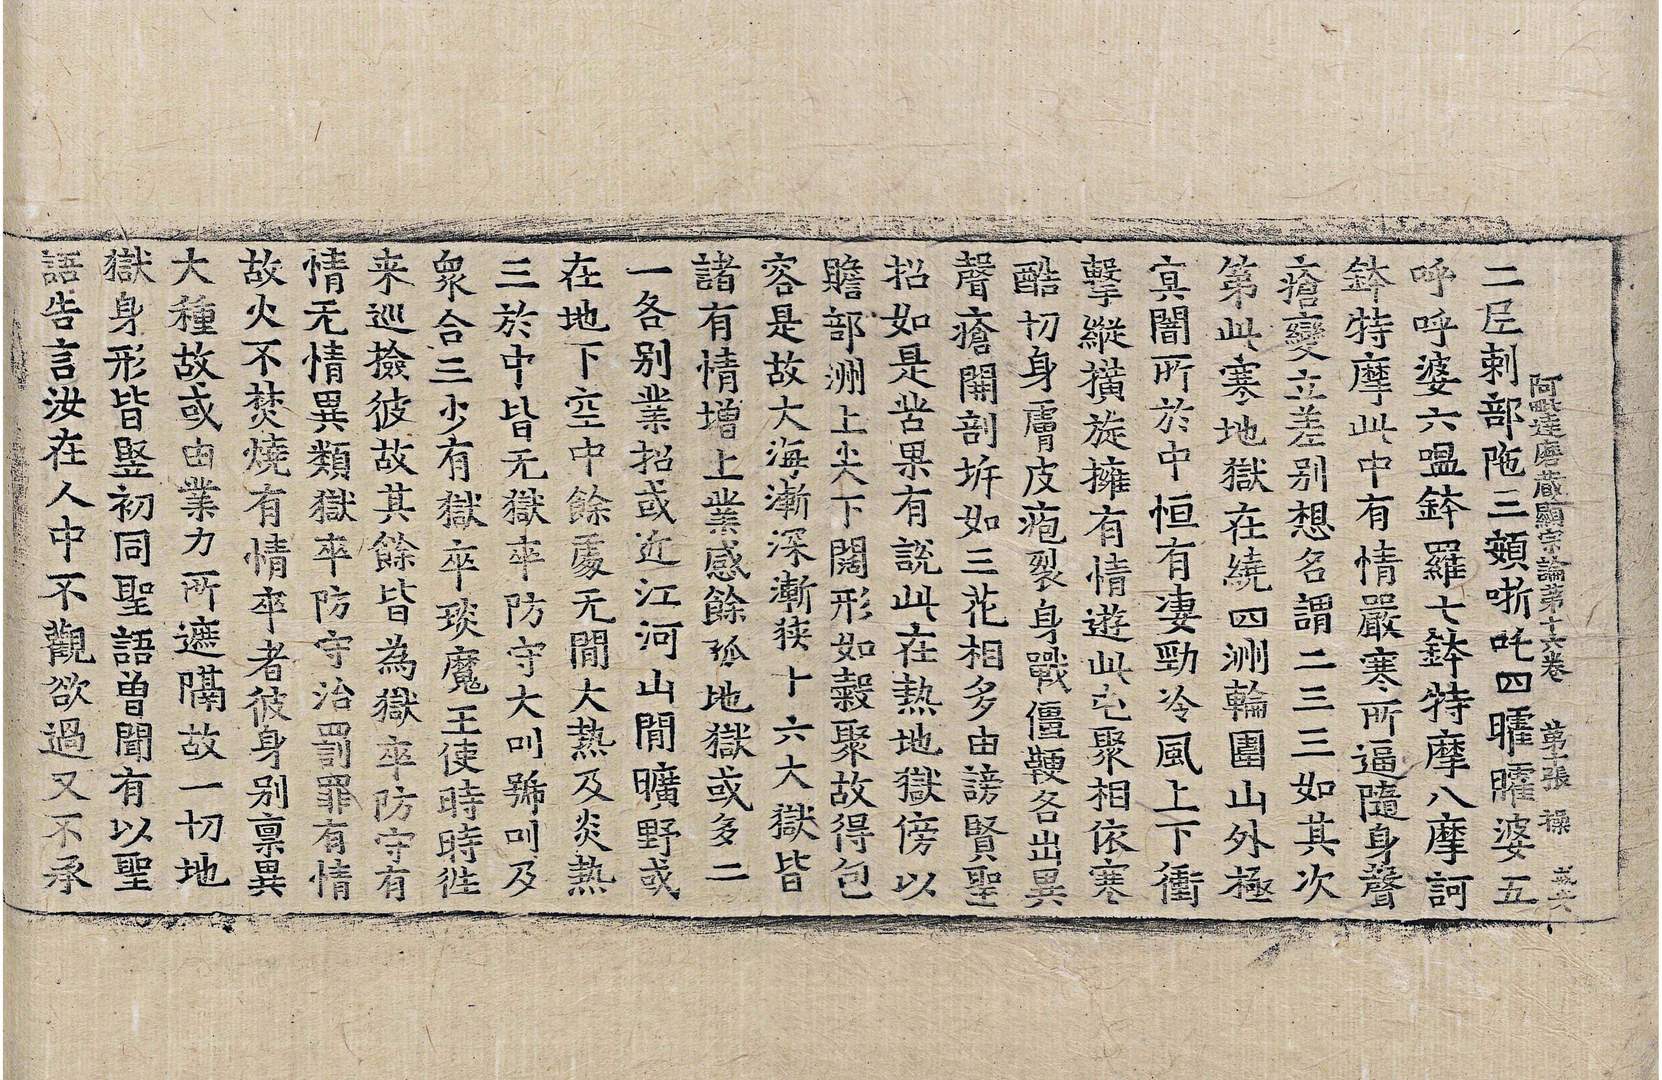 阿毗達磨藏顯宗論第十六卷 第十張 操
二尼剌部陁三頞哳吒四臛臛婆五
呼呼婆六嗢鉢羅七鉢特摩八摩訶
鉢特摩此中有情嚴寒所逼隨身聲
瘡變立差別想名謂二三三如其次
第此寒地獄在繞四洲輪圍山外極
冥闇所於中恒有凄勁冷風上下衝
擊縱撗旋擁有情遊此屯聚相依寒
酷切身膚皮疱裂身戰僵鞕各出異
聲瘡開剖坼如三花相多由謗賢聖
招如是苦果有說此在熱地獄傍以
贍部洲上尖下闊形如穀聚故得包
容是故大海漸深漸狹十六大獄皆
諸有情增上業感餘孤地獄或多二
一各別業招或近江河山閒曠野或
在地下空中餘處无閒大熱及炎熱
三於中皆无獄卒防守大叫號叫及
衆合三少有獄卒琰魔王使時時往
来巡撿彼故其餘皆為獄卒防守有
情无情異類獄卒防守治罰罪有情
故火不焚燒有情卒者彼身別禀異
大種故或由業力所遮隔故一切地
獄身形皆竪初同聖語曽聞有以聖
語告言汝在人中不觀欲過又不承